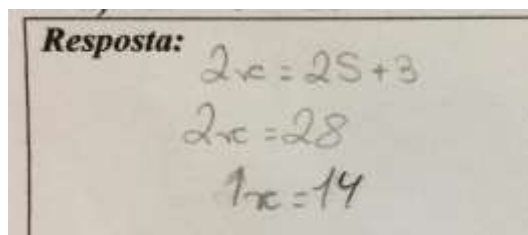 Resposta:
2x = 25 + 3
2x = 28
1x = 14